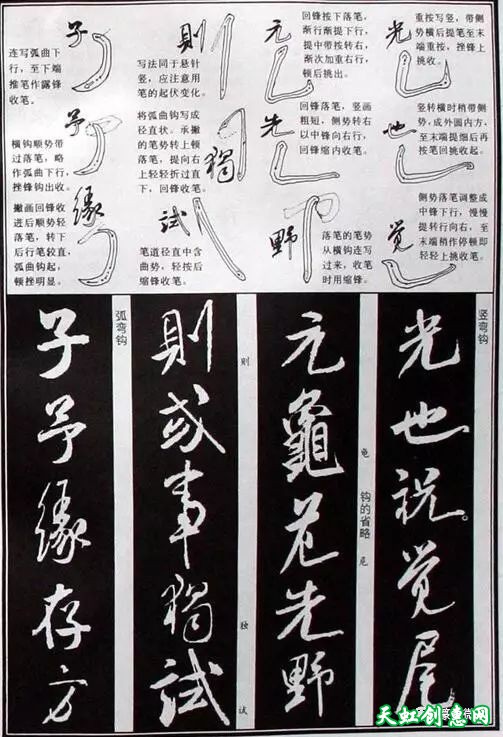 光
重按写竖,带侧
势横后提笔至末
端重按,挫锋上
挑收。
也
竖转横时稍带侧
势,成外圆内方,
至末端提细后再
按笔回挑收起。
觉
侧势落笔调整成
中锋下行,慢慢
提转行向右,至
末端稍作停顿即
轻轻上挑收笔。
元
回锋按下落笔,
渐行渐提下行,
提中带按转右,
渐次加重右行,
顿后挑出。
先
回锋落笔,竖画
粗短,侧势转右
以中锋向右行,
回锋缩内收笔。
野
落笔的笔势
从横钩连写
过来,收笔
时用缩锋。
則
写法同于悬针
竖,应注意用
笔的起伏变化。
獨
将弧曲钩写成
径直状。承撇
的笔势转上顿
落笔,提向右
上轻轻折过直
下,回锋收笔。
試
笔道径直中含
曲势,轻按后
缩锋收笔。
子
连写弧曲下
行,至下端
推笔作露锋
收笔。
予
横钩顺势带
过落笔,略
作弧曲下行,
挫锋钩出收。
緣
撇画回锋收
进后顺势轻
落笔,转下
后行笔较直,
弧曲钩起,
顿挫明显。
竖弯钩
光也説觉尾
钩的省略
龟 尼
元龜尼先野
则 独 试
則或事獨試
弧弯钩
子予緣存方
天虹创意网